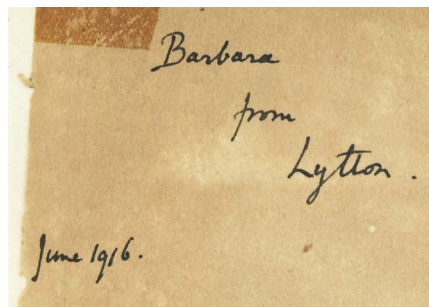 Barbara
from
Lytton.
June 1916.